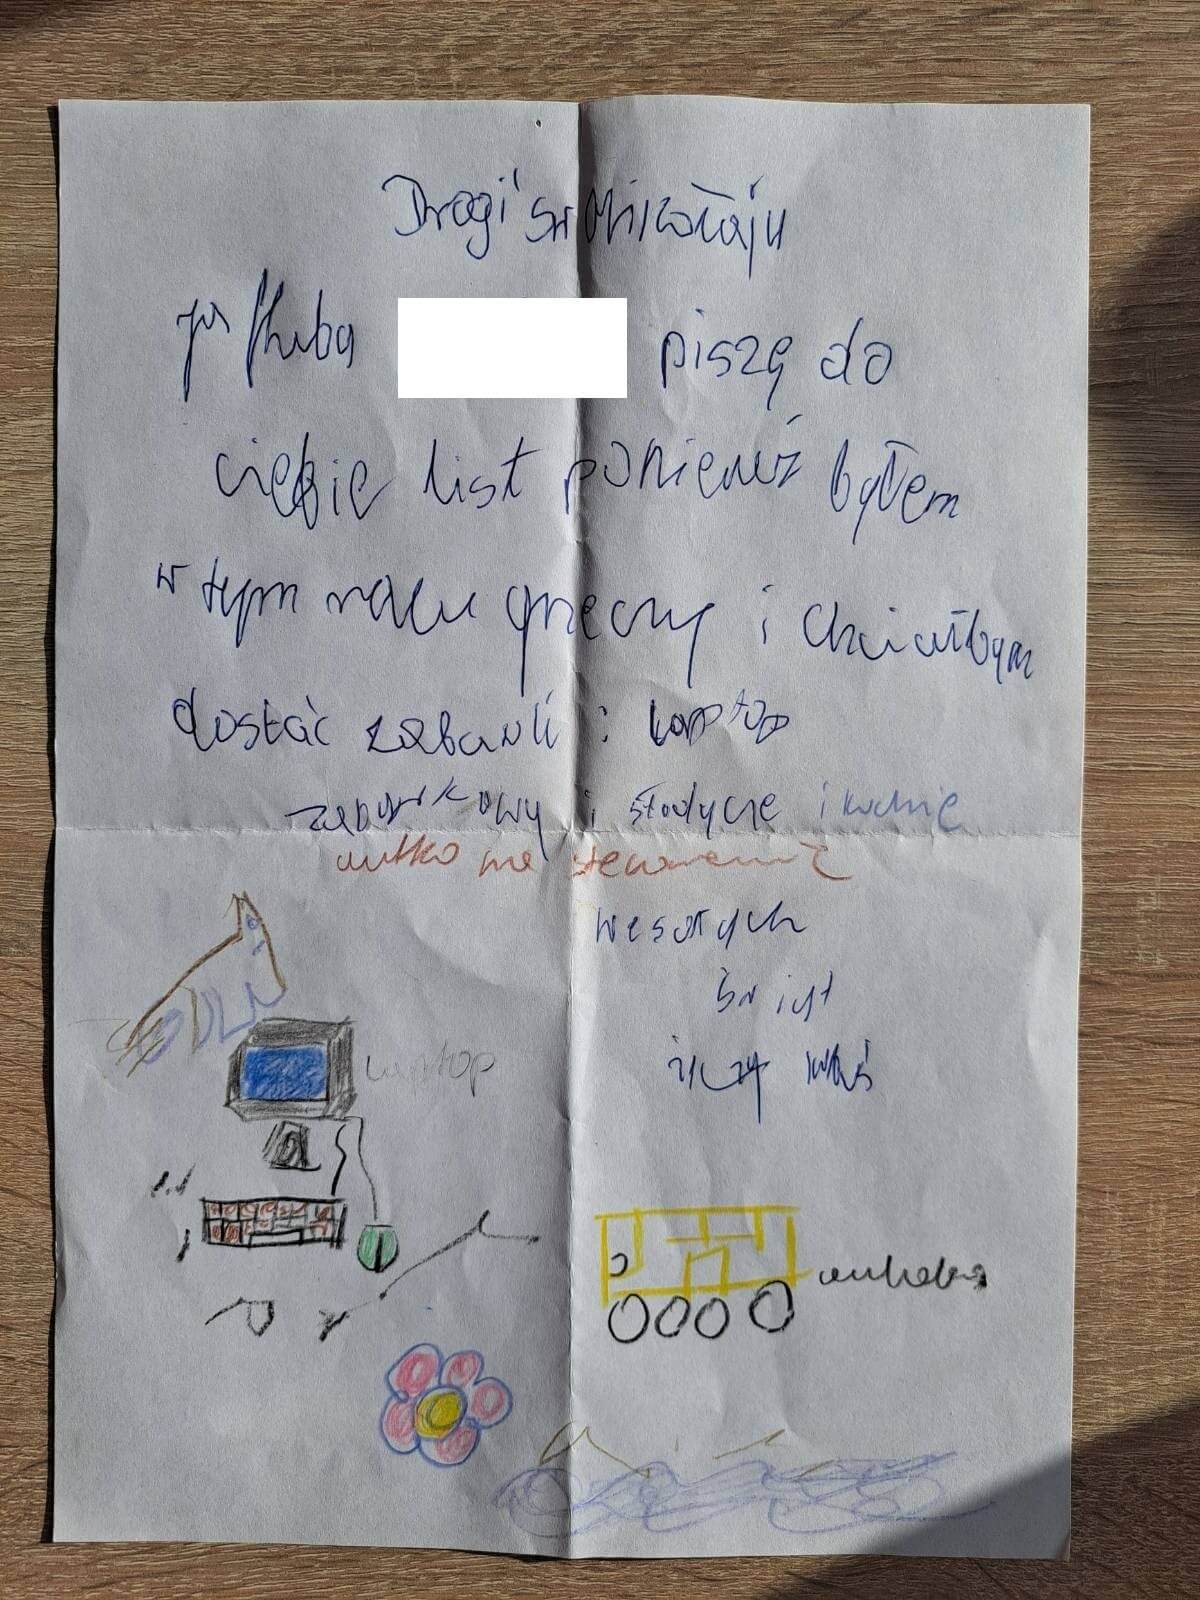 Drogi Św Mikołaju
ja Kuba piszę do
ciebie list ponieważ byłem
w tym roku grzeczny i chciałbym
dostać zabawki: laptop
zabawkowy i słodycze i kucnię
autko na sterowanie
wesołych
Świąt
życzy
laptop